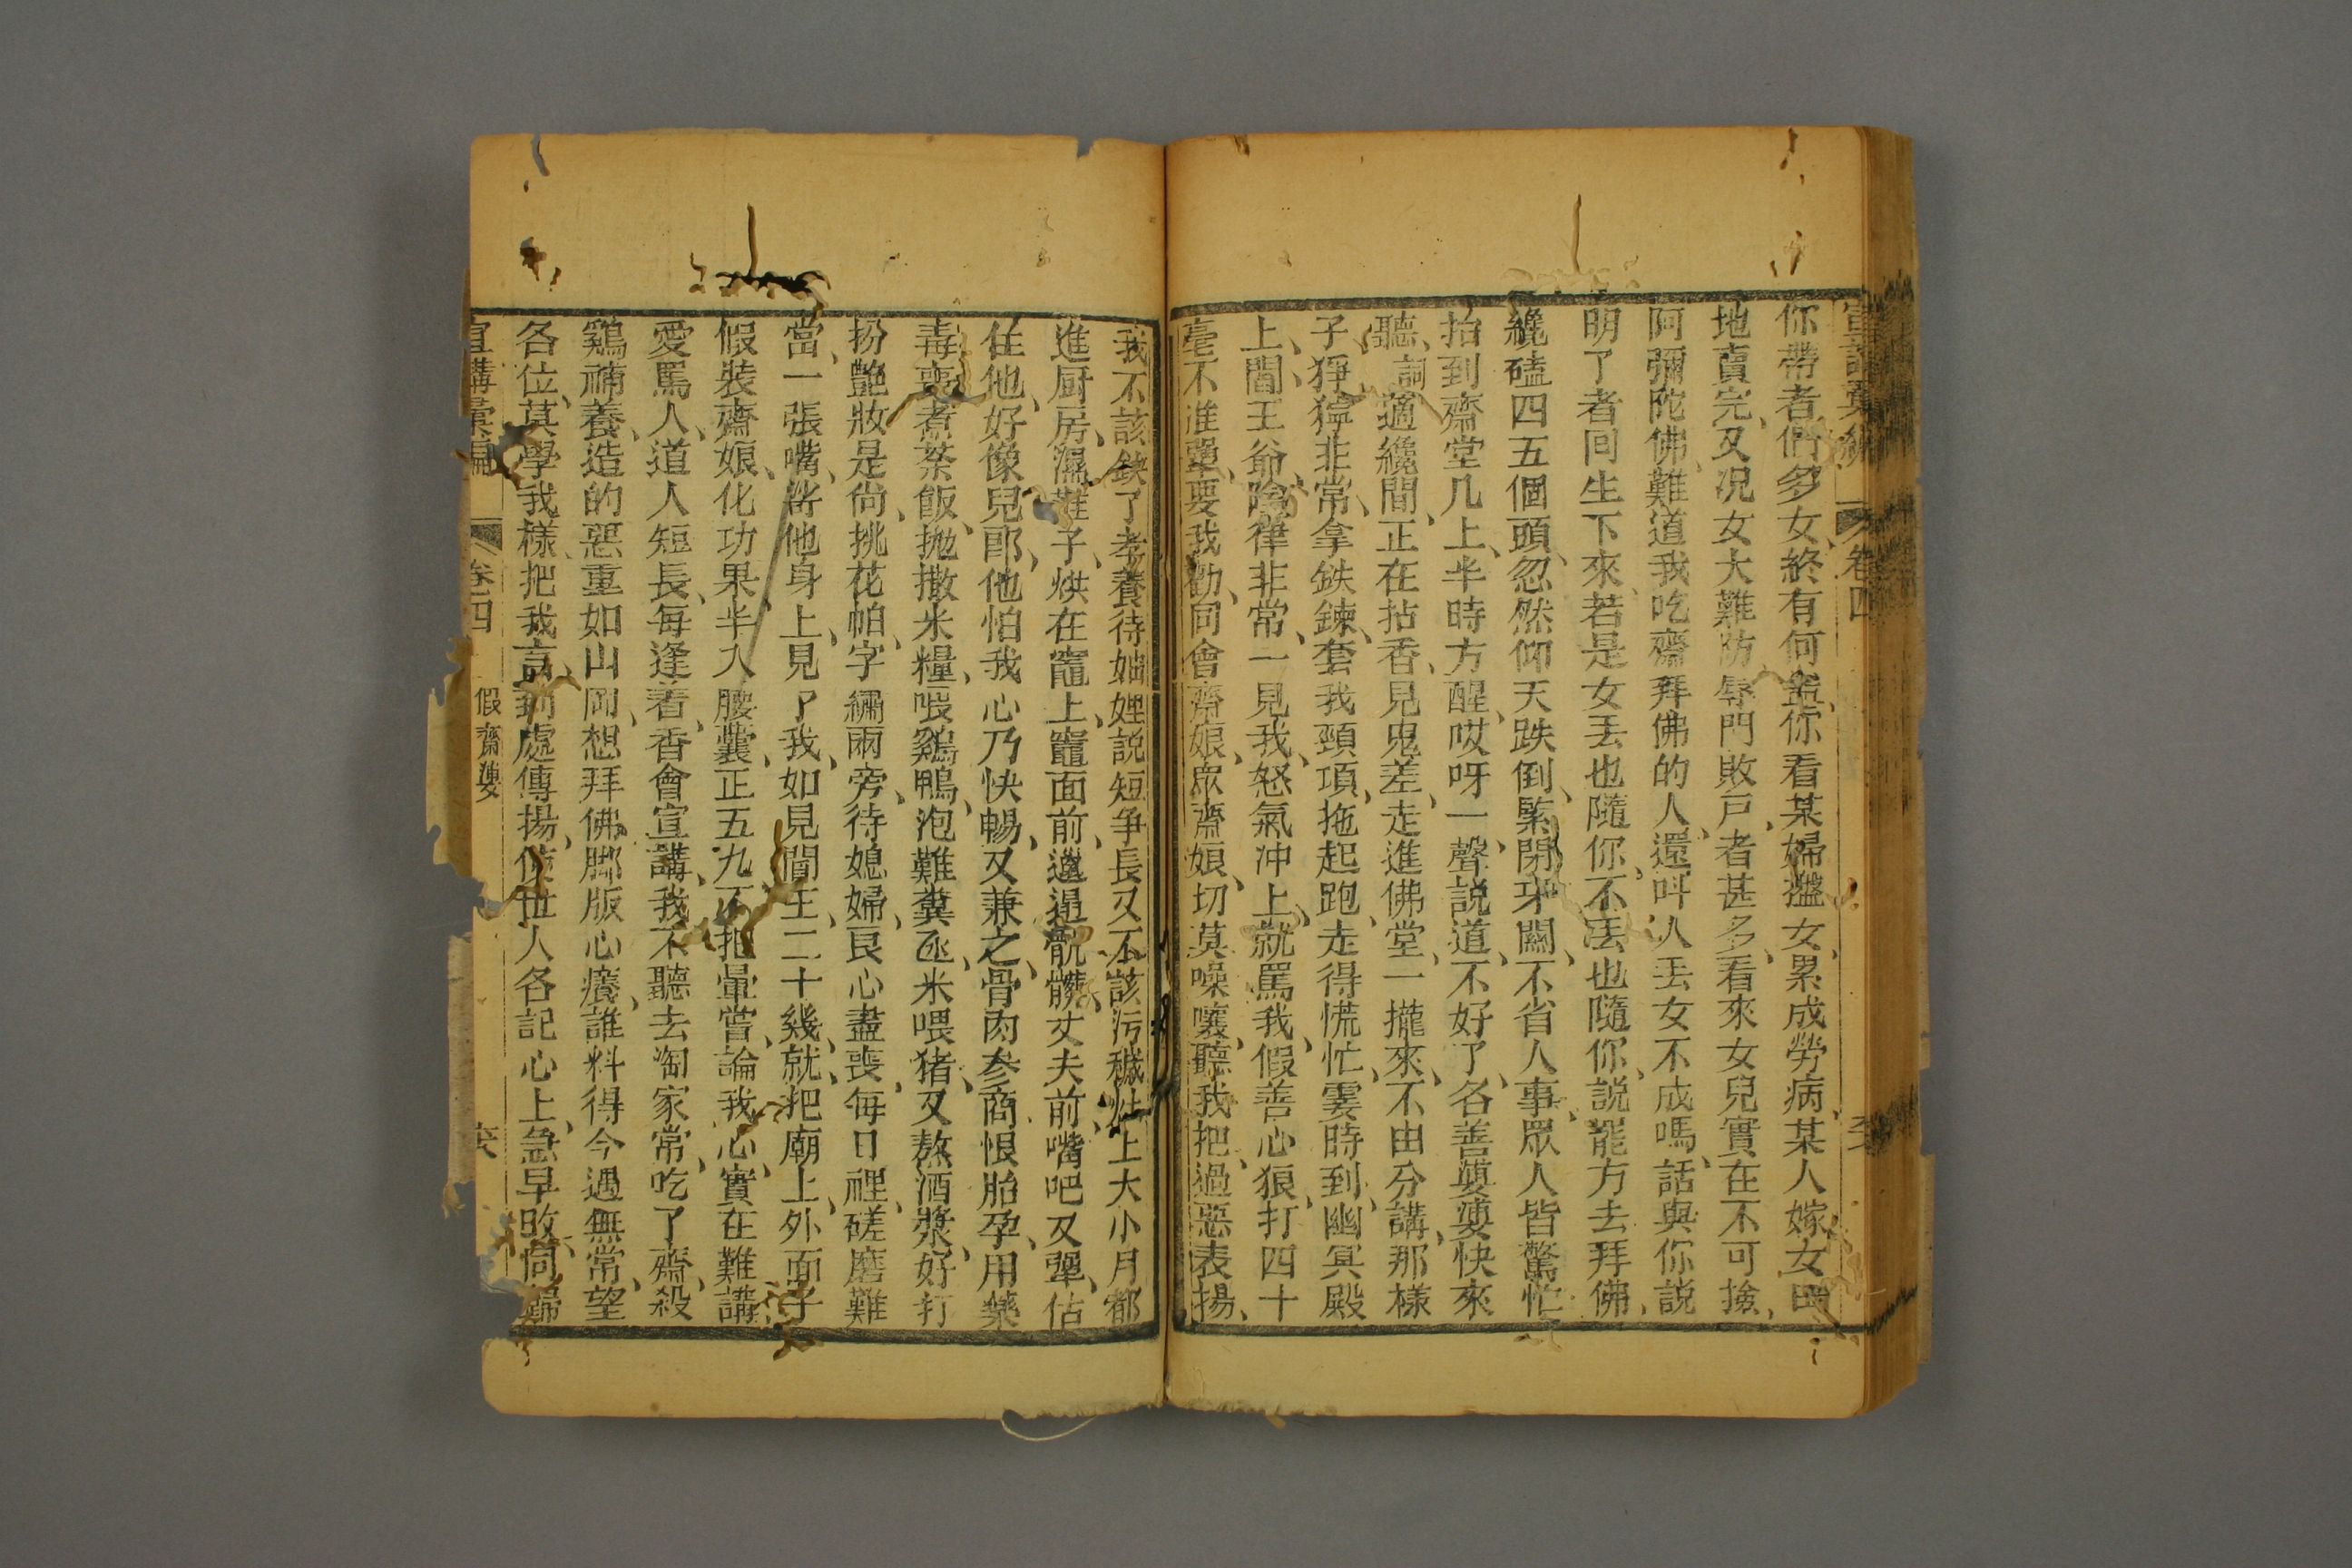 宣講彙編 卷四
你帶者們多女、終有何益、你看某婦搵女、累成勞病、某人嫁女田
地賣完、又况女大難防、辱門敗戸者甚多、看來女兒實在不可撿、
阿彌陀佛、難道我吃齋拜佛的人、還呌人丟女不成嗎、話與你説
明了者囘生下來、若是女丟也隨你、不丟也隨你、説罷方去拜佛、
纔磕四五個頭、忽然仰天跌倒、緊閉牙關、不省人事、眾人皆驚忙
抬到齋堂几上、半時方醒、哎呀一聲説道、不好了、各善婆婆快來
聽、詞適纔間、正在拈香、見鬼差、走進佛堂、一攏來、不由分講、那樣
子猙獰非常、拿鉄鍊、套我頸項、拖起跑、走得慌忙、霎時到、幽冥殿
上、閻王爺、陰律非常、一見我、怒氣冲上、就罵我、假善心狼、打四十
毫不准犟、要我勸、同會齋娘、眾齋娘、切莫噪嚷、聽我把、過惡表揚、
我不該、缺了孝養、待妯娌説短争長、又不該、污穢灶上、大小月都
進厨房、濕鞋子、烘在竈上、竈面前、邋遢骯髒、丈夫前、嘴吧又犟、估
住他、好像兒郎、他怕我、心乃快暢、又兼之、骨肉參商、恨胎孕、用藥
毒喪、煮茶飯、抛撒米糧、喂鷄鴨、泡難糞氹、米喂猪、又熬酒漿、好打
扮、艷妝是尚、挑花帕、字繡兩旁、待媳婦、良心盡喪、每日裡、磋磨難
當、一張嘴、詐他身上、見了我、如見閻王、二十幾、就把廟上、外面子
假裝齋娘、化功果、半入腰囊、正五九、不把暈嘗、論我心、實在難講
愛罵人、道人短長、每逢着、香會宣講、我不聽、去淘家常、吃了齋、殺
鷄補養、造的惡、重如山岡、想拜佛、脚版心癢、誰料得、今遇無常、望
各位、莫學我樣、把我言、到處傳揚、使世人、各記心上、急早改、同歸
宣講彙編 卷四 假齋婆